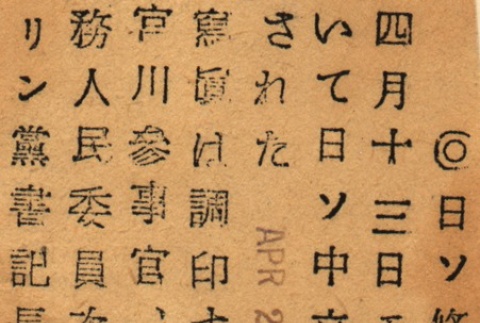 ◎日ソ
四月十三日
いて日ソ中
された
寫眞は調印
宮川參事官、
務人民委員
リン黨書記長
APR 2